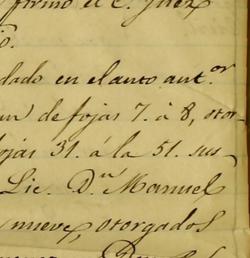 firmó el C. Juez
dado en el auto ant.or
de fojas 7. á 8, otor-
ojas 31. á la 51. sus-
Lic. D.n Manuel
nueve, otorgados